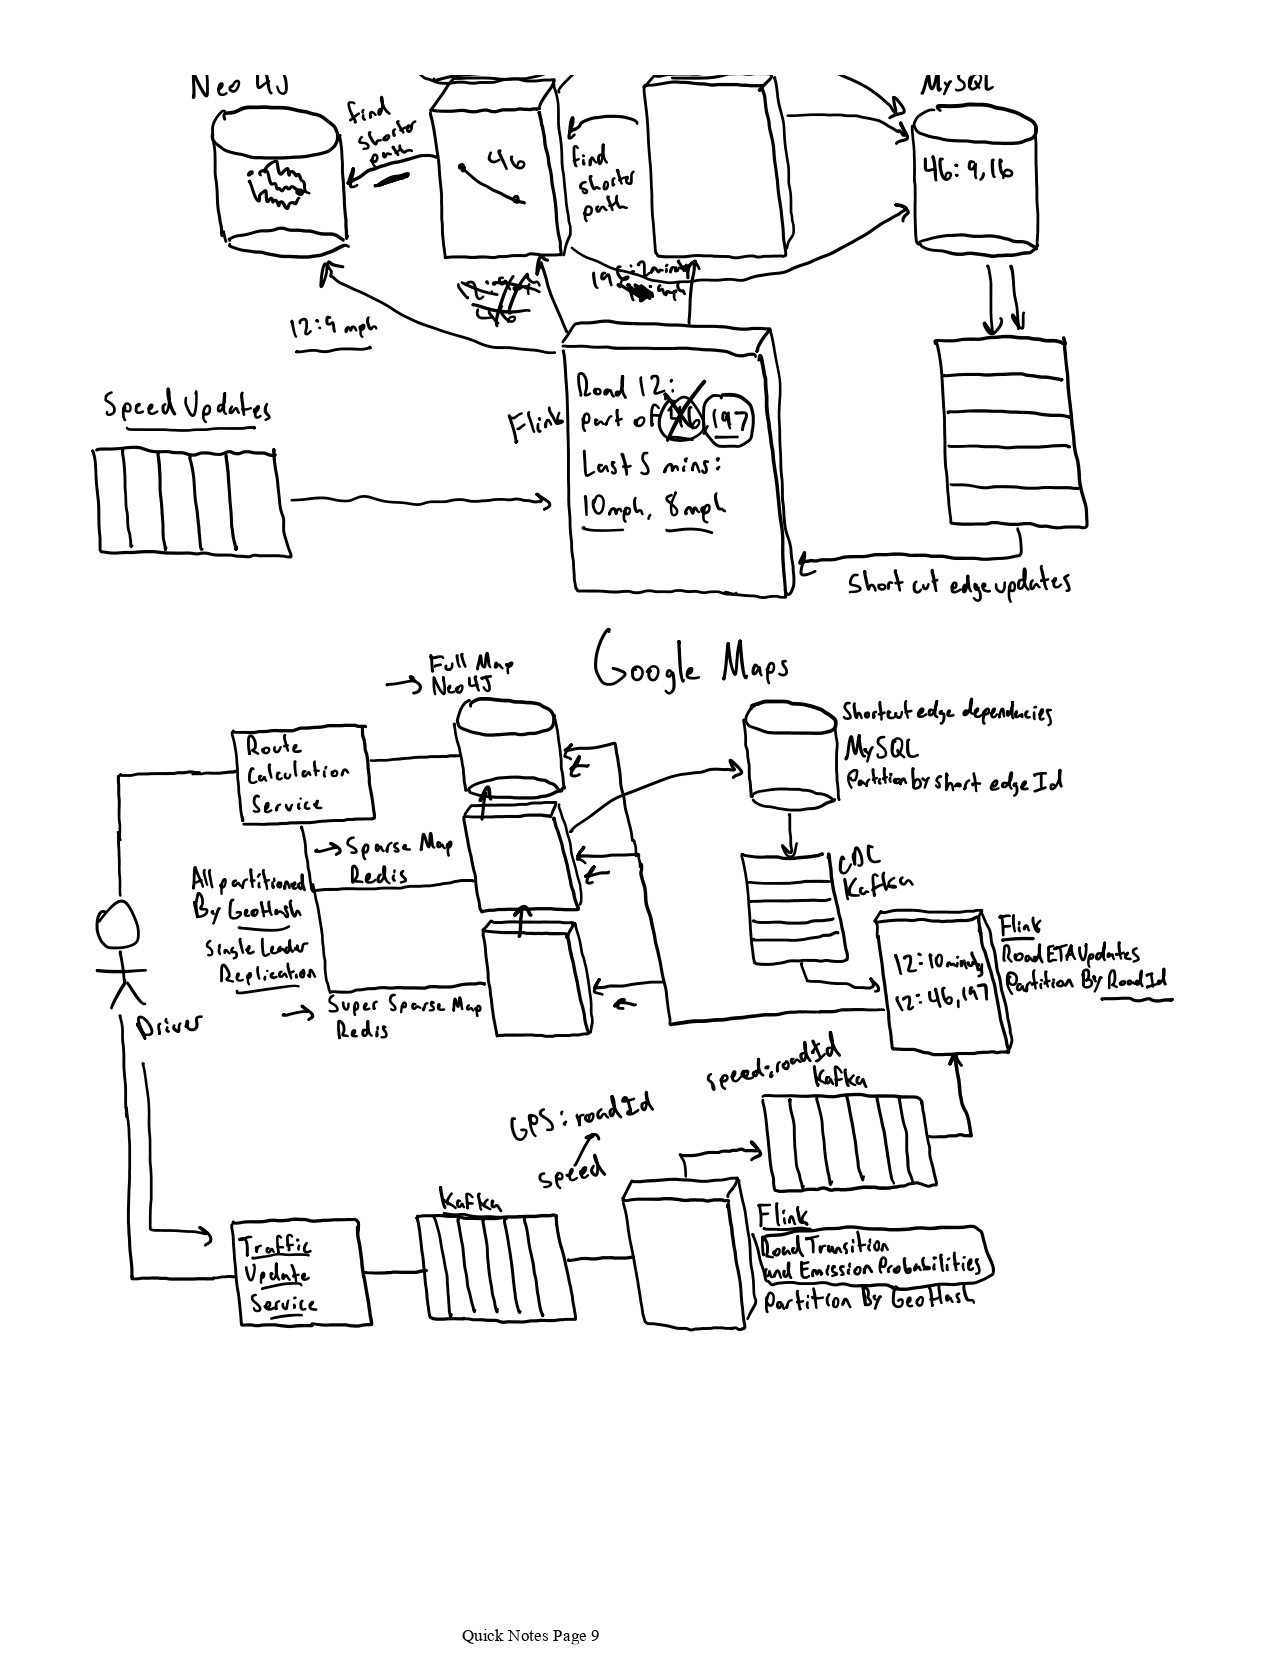 Neo 4J
MySQL
find
shorter
path
46
find
shorter
path
46: 9, 16
12: 9 mph
46
Speed Updates
Flink
Road 12:
part of 46, 197
Last 5 mins:
10mph, 8mph
Short cut edge updates
Google Maps
Full Map
Neo4J
Route
Calculation
Service
Shortcut edge dependencies
MySQL
Partition by short edge Id
Sparse Map
Redis
CDC
Kafka
All partitioned
By GeoHash
Single Leader
Replication
Super Sparse Map
Redis
Driver
Flink
Road ETA Updates
Partition By Road Id
12: 10 minutes
12: 46, 197
speed: roadId
Kafka
GPS: roadId
speed
Kafka
Traffic
Update
Service
Flink
Road Transition
and Emission Probabilities
Partition By GeoHash
Quick Notes Page 9